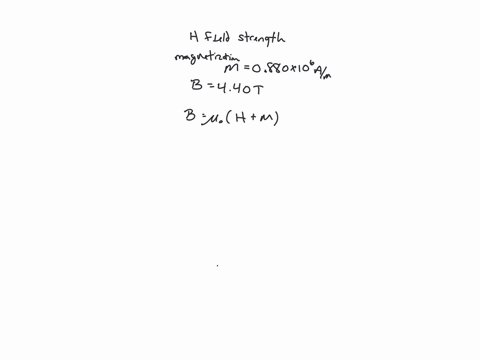 H field strength
magnetization
M = 0.880×10⁶ A/m
B = 4.40T
B = μ₀(H + M)